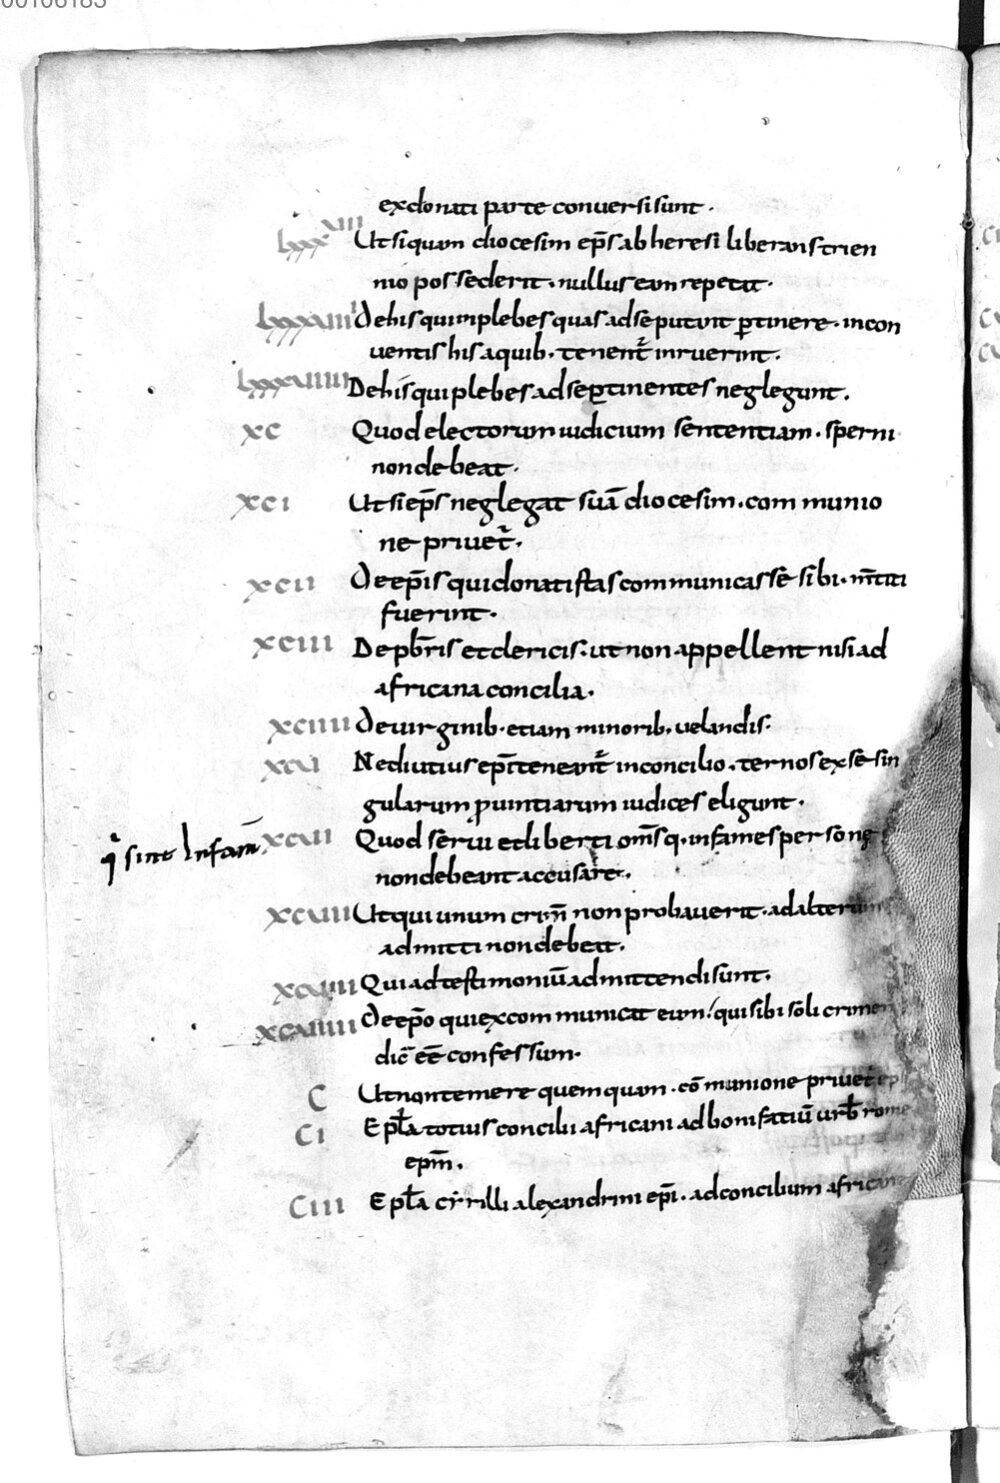 00106183
ex donati parte conuersi sunt.
lxxxuiii Ut si quam diocesim ep̅s ab heresi liberans trien
nio possederit. nullus eam repetat.
lxxxuiiii De his qui in plebes quas ad se putant ꝑtinere. in con
uentis his a quib. tenent̅ inruerint.
De his qui plebes ad se ꝑtinentes neglegunt.
xc Quod electorum iudicium sententiam. sperni
non debeat.
xci Ut si ep̅s neglegat suā diocesim. communio
ne priuet̅.
xcii De ep̅is qui donatistas communicasse sibi. m̅titi
fuerint.
xciii De pb̅ris et clericis: ut non appellent nisi ad
africana concilia.
xciiii De uirginib. etiam minorib. uelandis.
xcu Ne diutius ep̅i teneant̅ in concilio. ternos ex se sin
gularum prouintiarum iudices eligunt.
q̅ sint Infam̅ xcuii Quod serui et liberti om̅sq. infames personę
non debeant accusare.
xcuiii Ut qui unum crim̅ non probauerit. ad alterum
admitti non debeat.
xcuiii Qui ad testimoniū admittendi sunt.
xcuiiii De ep̅o qui excommunicat eum/ qui sibi soli crimen
dic̅ ee̅ confessum.
C Ut non temere quemquam. co̅munione priuet ep̅
CI Epl̅a totius concilii africani ad bonifatiū urb̅ rome
epm̅.
CIII Epl̅a cyrilli alexandrini epi̅. ad concilium african